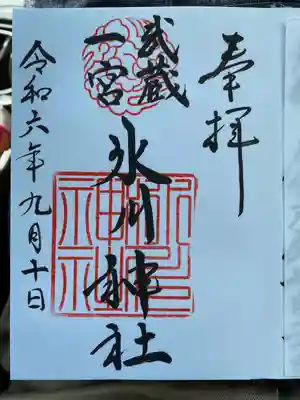 奉拝
武蔵
一宮
氷川神社
令和六年九月十日